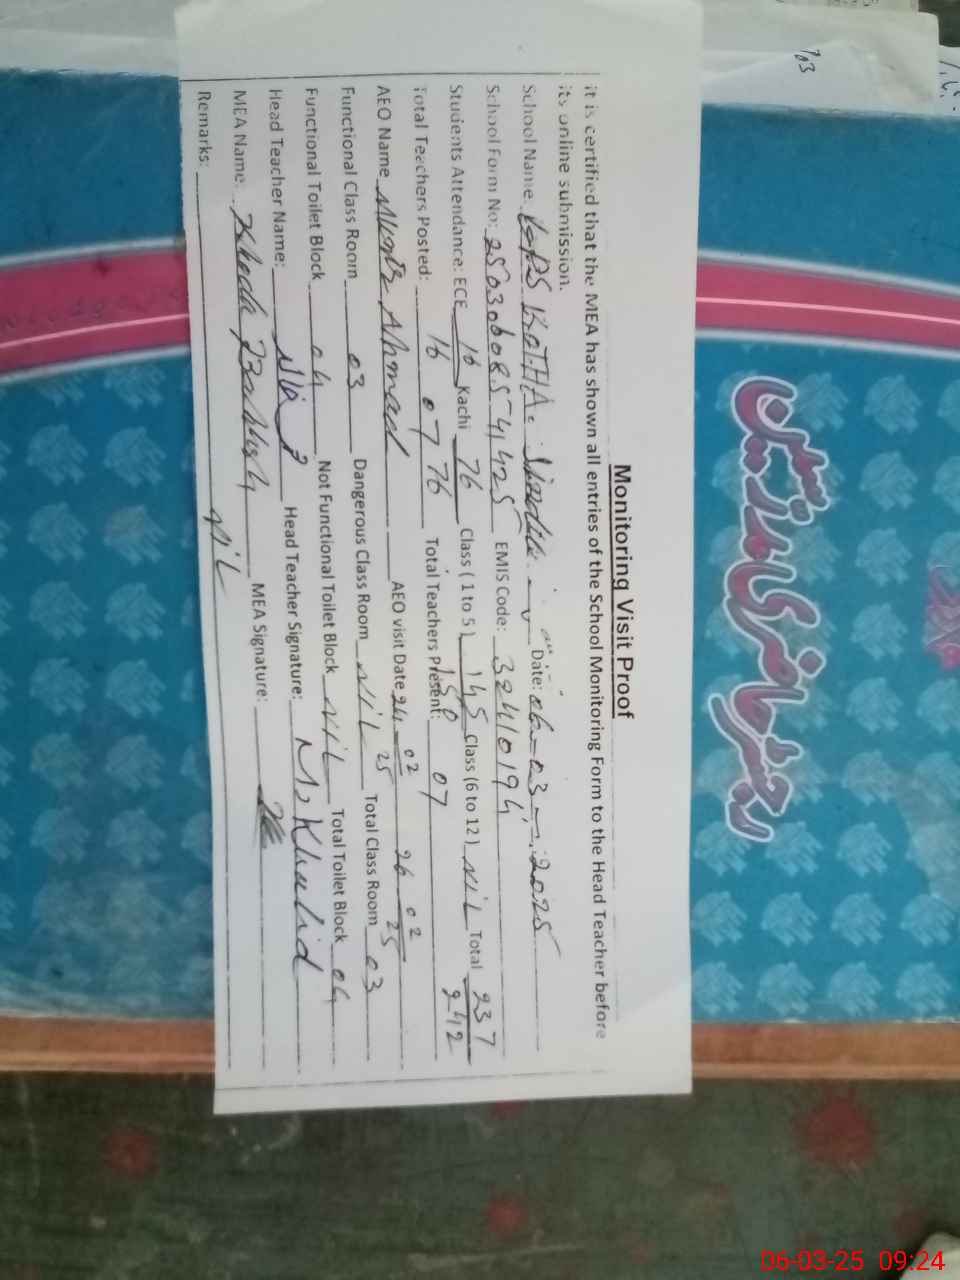 Monitoring Visit Proof
it is certified that the MEA has shown all entries of the School Monitoring Form to the Head Teacher before
its online submission.
School Name. GPS KOTHA. Date: 06-03-2025
School Form No: 2503060854425 EMIS Code: 32410194
Students Attendance: ECE 16 Kachi 76 Class ( 1 to 5) 145 Class (6 to 12 ) NIL Total 237
16 76 150 242
Total Teachers Posted: 07 Total Teachers Present: 07
AEO Name Ahmad AEO visit Date 24-02-25 26-02-25
Functional Class Room 03 Dangerous Class Room NIL Total Class Room 03
Functional Toilet Block 04 Not Functional Toilet Block NIL Total Toilet Block 04
Head Teacher Name: Head Teacher Signature: M. Khalid
MEA Name: Khuda Bakhsh MEA Signature:
Remarks: NIL
703
06-03-25 09:24